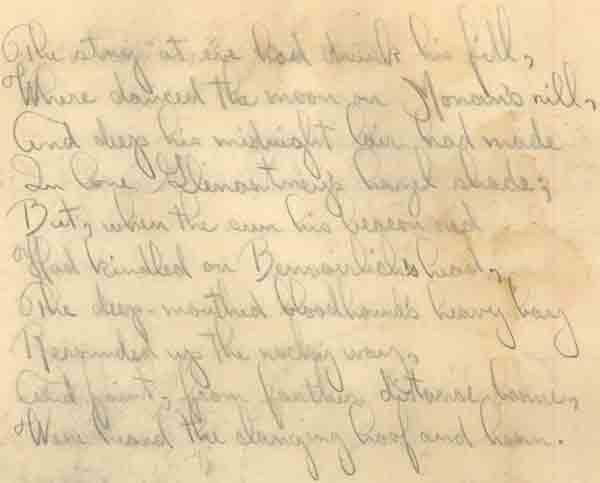 The stag at eve had drunk his fill,
Where danced the moon on Monan's rill,
And deep his midnight lair had made
In lone Glenartney's hazel shade;
But, when the sun his beacon red
Had kindled on Benvoirlich's head,
The deep-mouthed bloodhound's heavy bay
Resounded up the rocky way,
And faint, from farther distance borne,
Were heard the clanging hoof and horn.